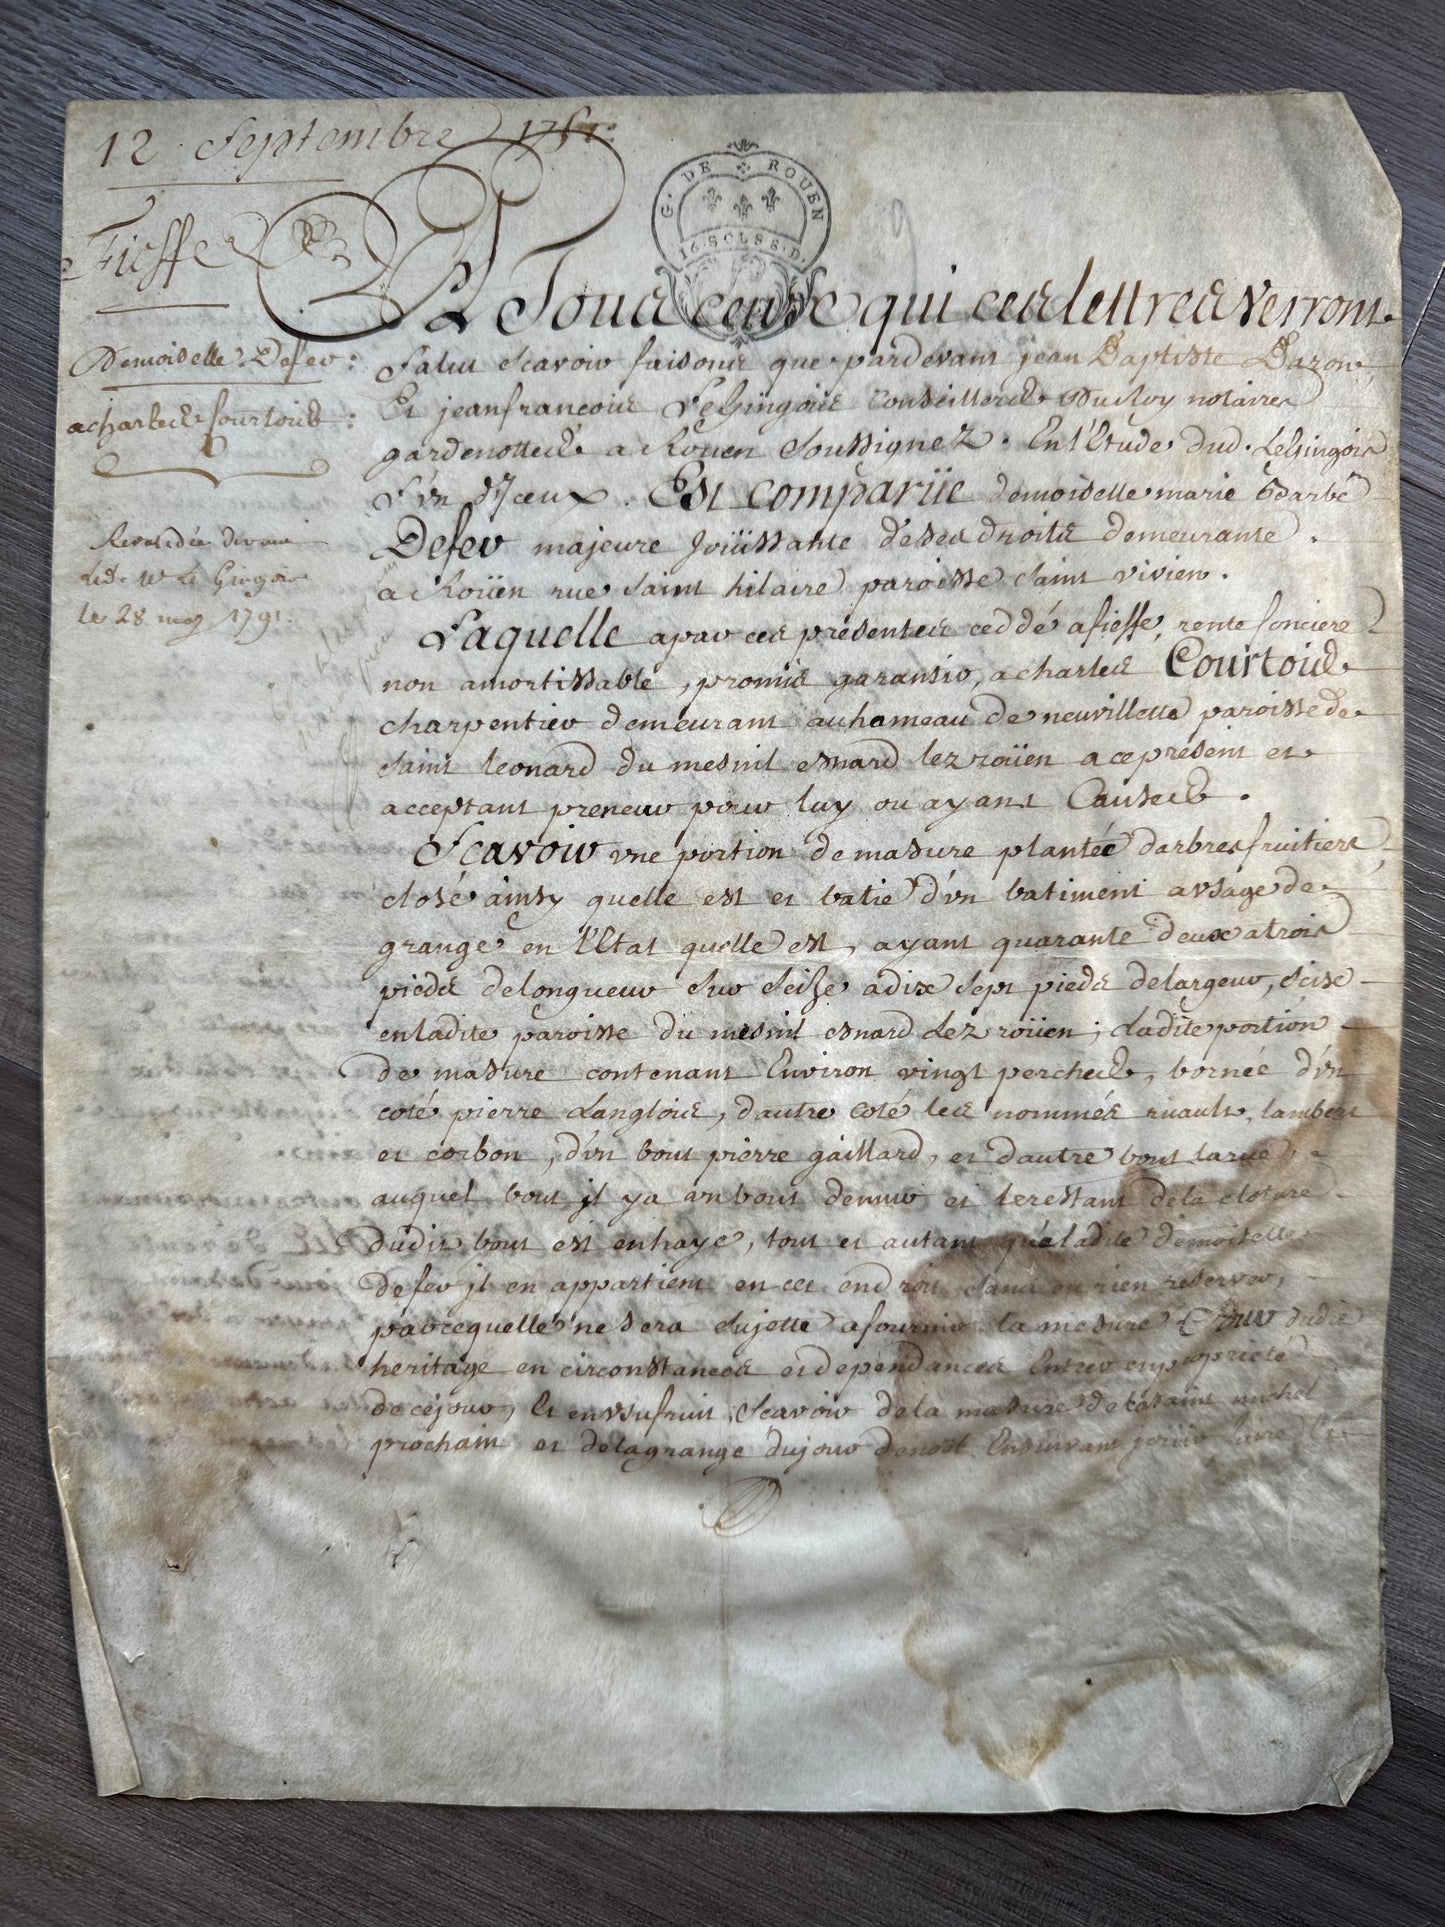 12 Septembre
Fieffe
G. DE ROUEN
16. SOLS 8. D.
A Tous ceux qui ces lettres verront
Demoiselle Defev :
a charles Courtois :
le 28 may 1791.
Salut Scavoir faisons que pardevant jean Baptiste
Et jean francois LeGingois Conseillers Du Roy notaires
gardenottes a Roüen Soussignez . En l'Etude dud. LeGingois
L'vn D'Jceux . Est comparüe demoiselle marie Barbe
Defev majeure Joüissante de ses droits demeurante .
a Roüen rue Saint hilaire paroisse Saint vivien .
Laquelle a par ces presentes ceddé a fieffe, rente fonciere
non amortissable , promis garantir, a charles Courtois
charpentier demeurant au hameau de neuvillette paroisse de
Saint leonard du mesnil esnard lez roüen a ce présent et
acceptant preneur pour luy ou ayans Causes .
Scavoir vne portion de masure plantée darbres fruitiers
closé ainsy quelle est et batie d'vn batiment a vsage de
grange en l'Etat quelle est , ayant quarante deux a trois
pieds de longueur sur seize a dix sept pieds de largeur, sise
en ladite paroisse du mesnil esnard Lez roüen ; Ladite portion
de masure contenant Environ vingt perches , bornée d'vn
coté pierre Langlois , d'autre coté les nommés ruault, lambert
et corbon , d'vn bout pierre gaillard, et d'autre bout la rue,
auquel bout jl y a vn bout de mur et le restant de la cloture
dudit bout est en haye, tout et autant qu'a ladite demoiselle
defev jl en appartient en cet endroit sans en rien reserver,
parce quelle ne sera sujette a fournir la mesure Pour dudit
heritage en circonstances et dependances Entrer en propriete
de ce jour, Et en vsufruit ; Scavoir de la masure de la saint michel
prochain et de la grange du jour de noël Ensuivant